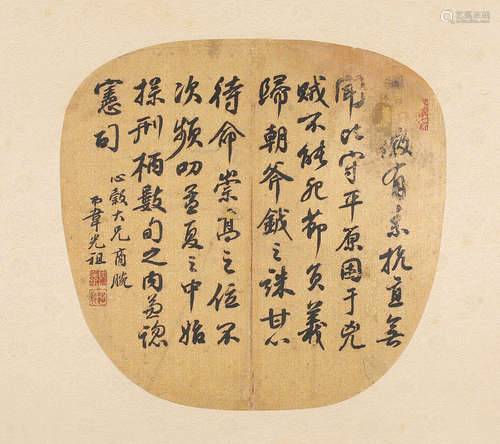 有素抗直無
聞比守平原困于兇
賊不能死節負義
歸朝斧鉞之誅甘心
待命崇高之位不
次頻叨孟夏之中始
操刑柄數旬之内兼總
憲司
心穀大兄商腕
弟韋光祖